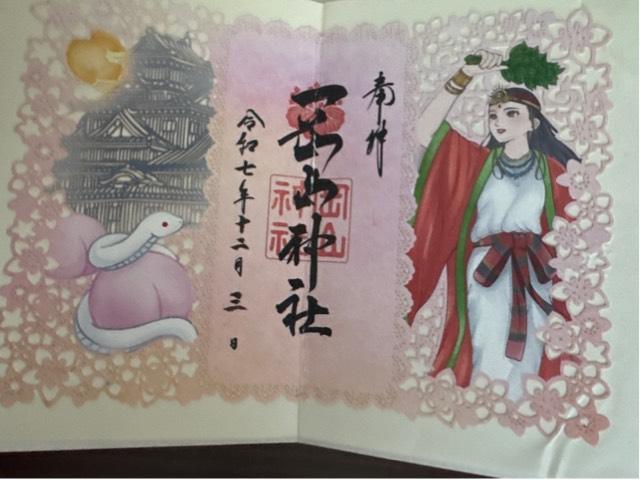 奉拝
岡山神社
岡山
神社
令和七年十二月三日